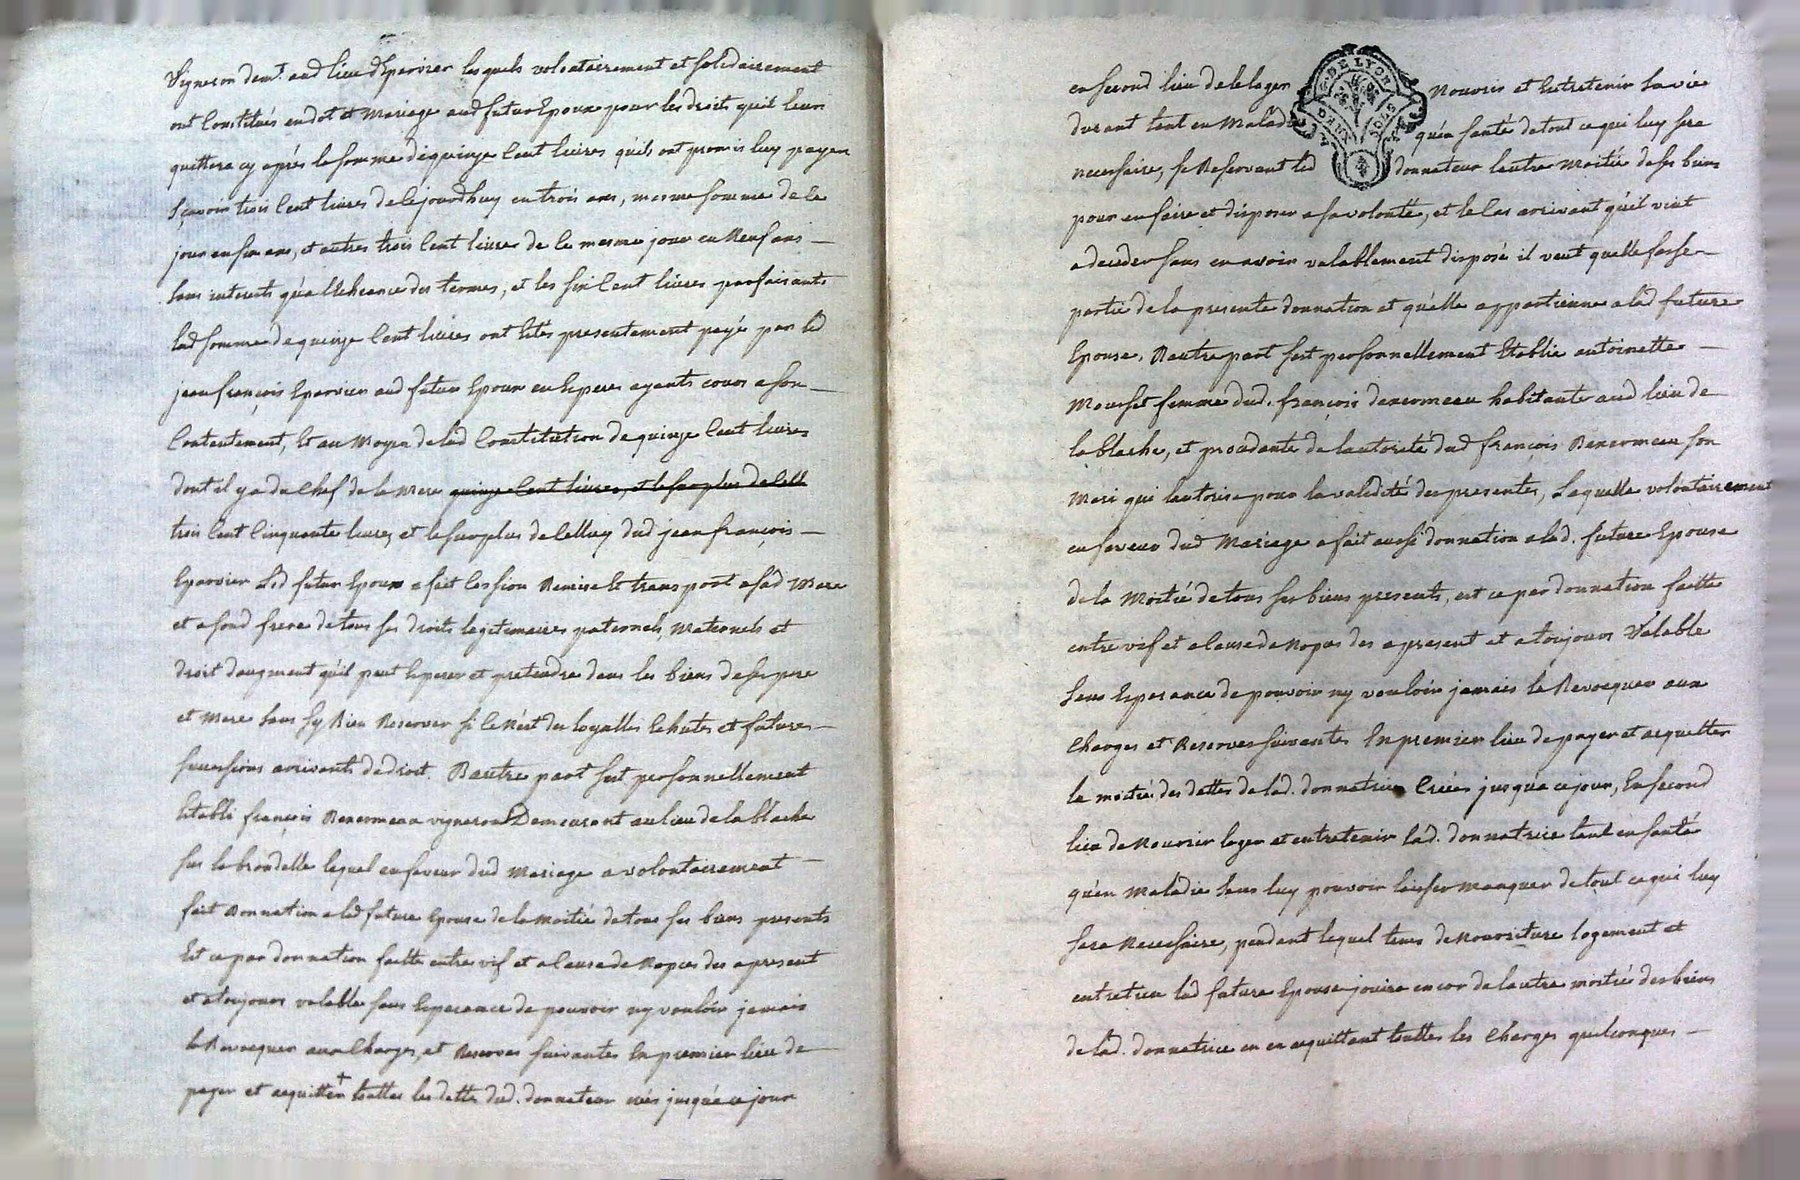 Vigneron demt. aud lieu dEparvier lesquels volontairement et solidairement
ont Constitués en dot et Mariage aud futur Epoux pour les droits quil leur
quittera cy aprés la somme de quinze Cent livres quils ont promis luy payer
sçavoir trois Cent livres de Cejourdhuy en trois ans, mesme somme de Ce
jour en six ans, et autres trois Cent livres de Ce mesme jour en Neuf ans
sans interests qu'a l'Echeance des termes, et les six Cent livres parfaisants
lad somme de quinze Cent livres ont Eté presentement payé par led
jean françois Eparvier aud futur Epoux en Especes ayants cours a son
Contentement, Et au Moyen de lad Constitution de quinze Cent livres
dont il y a du Chef de la Mere quinze Cent livres, et le surplus de Cell
trois Cent Cinquante livres et le surplus de Celluy dud jean françois
Eparvier Led futur Epoux a fait Cession Remise Et transport a sad Mere
et a sond frere de tous ses droits legitimaires paternels, Maternels et
droit daugment qu'il peut Esperer et pretendre dans les biens de ses pere
et Mere sans sy Rien Reserver si Ce N'est des loyalles Echutes et futures
successions arrivants de droit. Dautre part s'est personnellement
Etabli françois Denermeau vigneron Demeurant au lieu de la blache
sur la brondelle lequel en faveur dud Mariage a volontairement
fait Donnation a lad future Epouse de la Moitié de tous ses biens presents
Et ce par donnation faitte entre vif et a Cause de Nopces des a present
et a toujours valable sans Esperance de pouvoir ny vouloir jamais
la Revoquer aux Charges, et Reserves suivantes En premier lieu de
payer et acquitter + touttes les dettes dud. donnateur jusqu'a ce jour
en second lieu de le loger Nourrir et Entretenir sa vie
durant tant en Maladie qu'en santé de tout ce qui luy sera
necessaire, se Reservant led donnateur lautre Moitié de ses biens
pour en faire et disposer a sa volonté, et le Cas arrivant qu'il vint
a deceder sans en avoir valablement disposé il veut quelle fasse
partie de la presente donnation et qu'elle appartienne a lad future
Epouse. Dautre part s'est personnellement Etablie antoinette
Mousset femme dud. françois denermeau habitante aud lieu de
la blache, et procédante de lautorité dud françois Denermeau son
Mari qui lautorise pour la validité des presentes, Laquelle volontairement
en faveur dud Mariage a fait aussi donnation a lad. future Epouse
de la Moitié de tous ses biens presents, est ce par donnation faitte
entre vif et a Cause de Nopces des a present et a toujours Valable
sans Esperance de pouvoir ny vouloir jamais la Revocquer aux
Charges et Reserves suivantes En premier lieu de payer et acquitter
la moitié des dettes de lad. donnatrice Créés jusqu'a ce jour, En second
lieu de Nourrir loger et entretenir lad. donnatrice tant en santé
qu'en Maladie sans luy pouvoir laisser manquer de tout ce qui luy
sera Necessaire, pendant lequel tems de Nourriture logement et
entretien lad future Epouse jouira encor de lautre moitié des biens
de lad. donnatrice en en acquittant touttes les Charges quelconques
G. DE LYON
DEUX SOLS